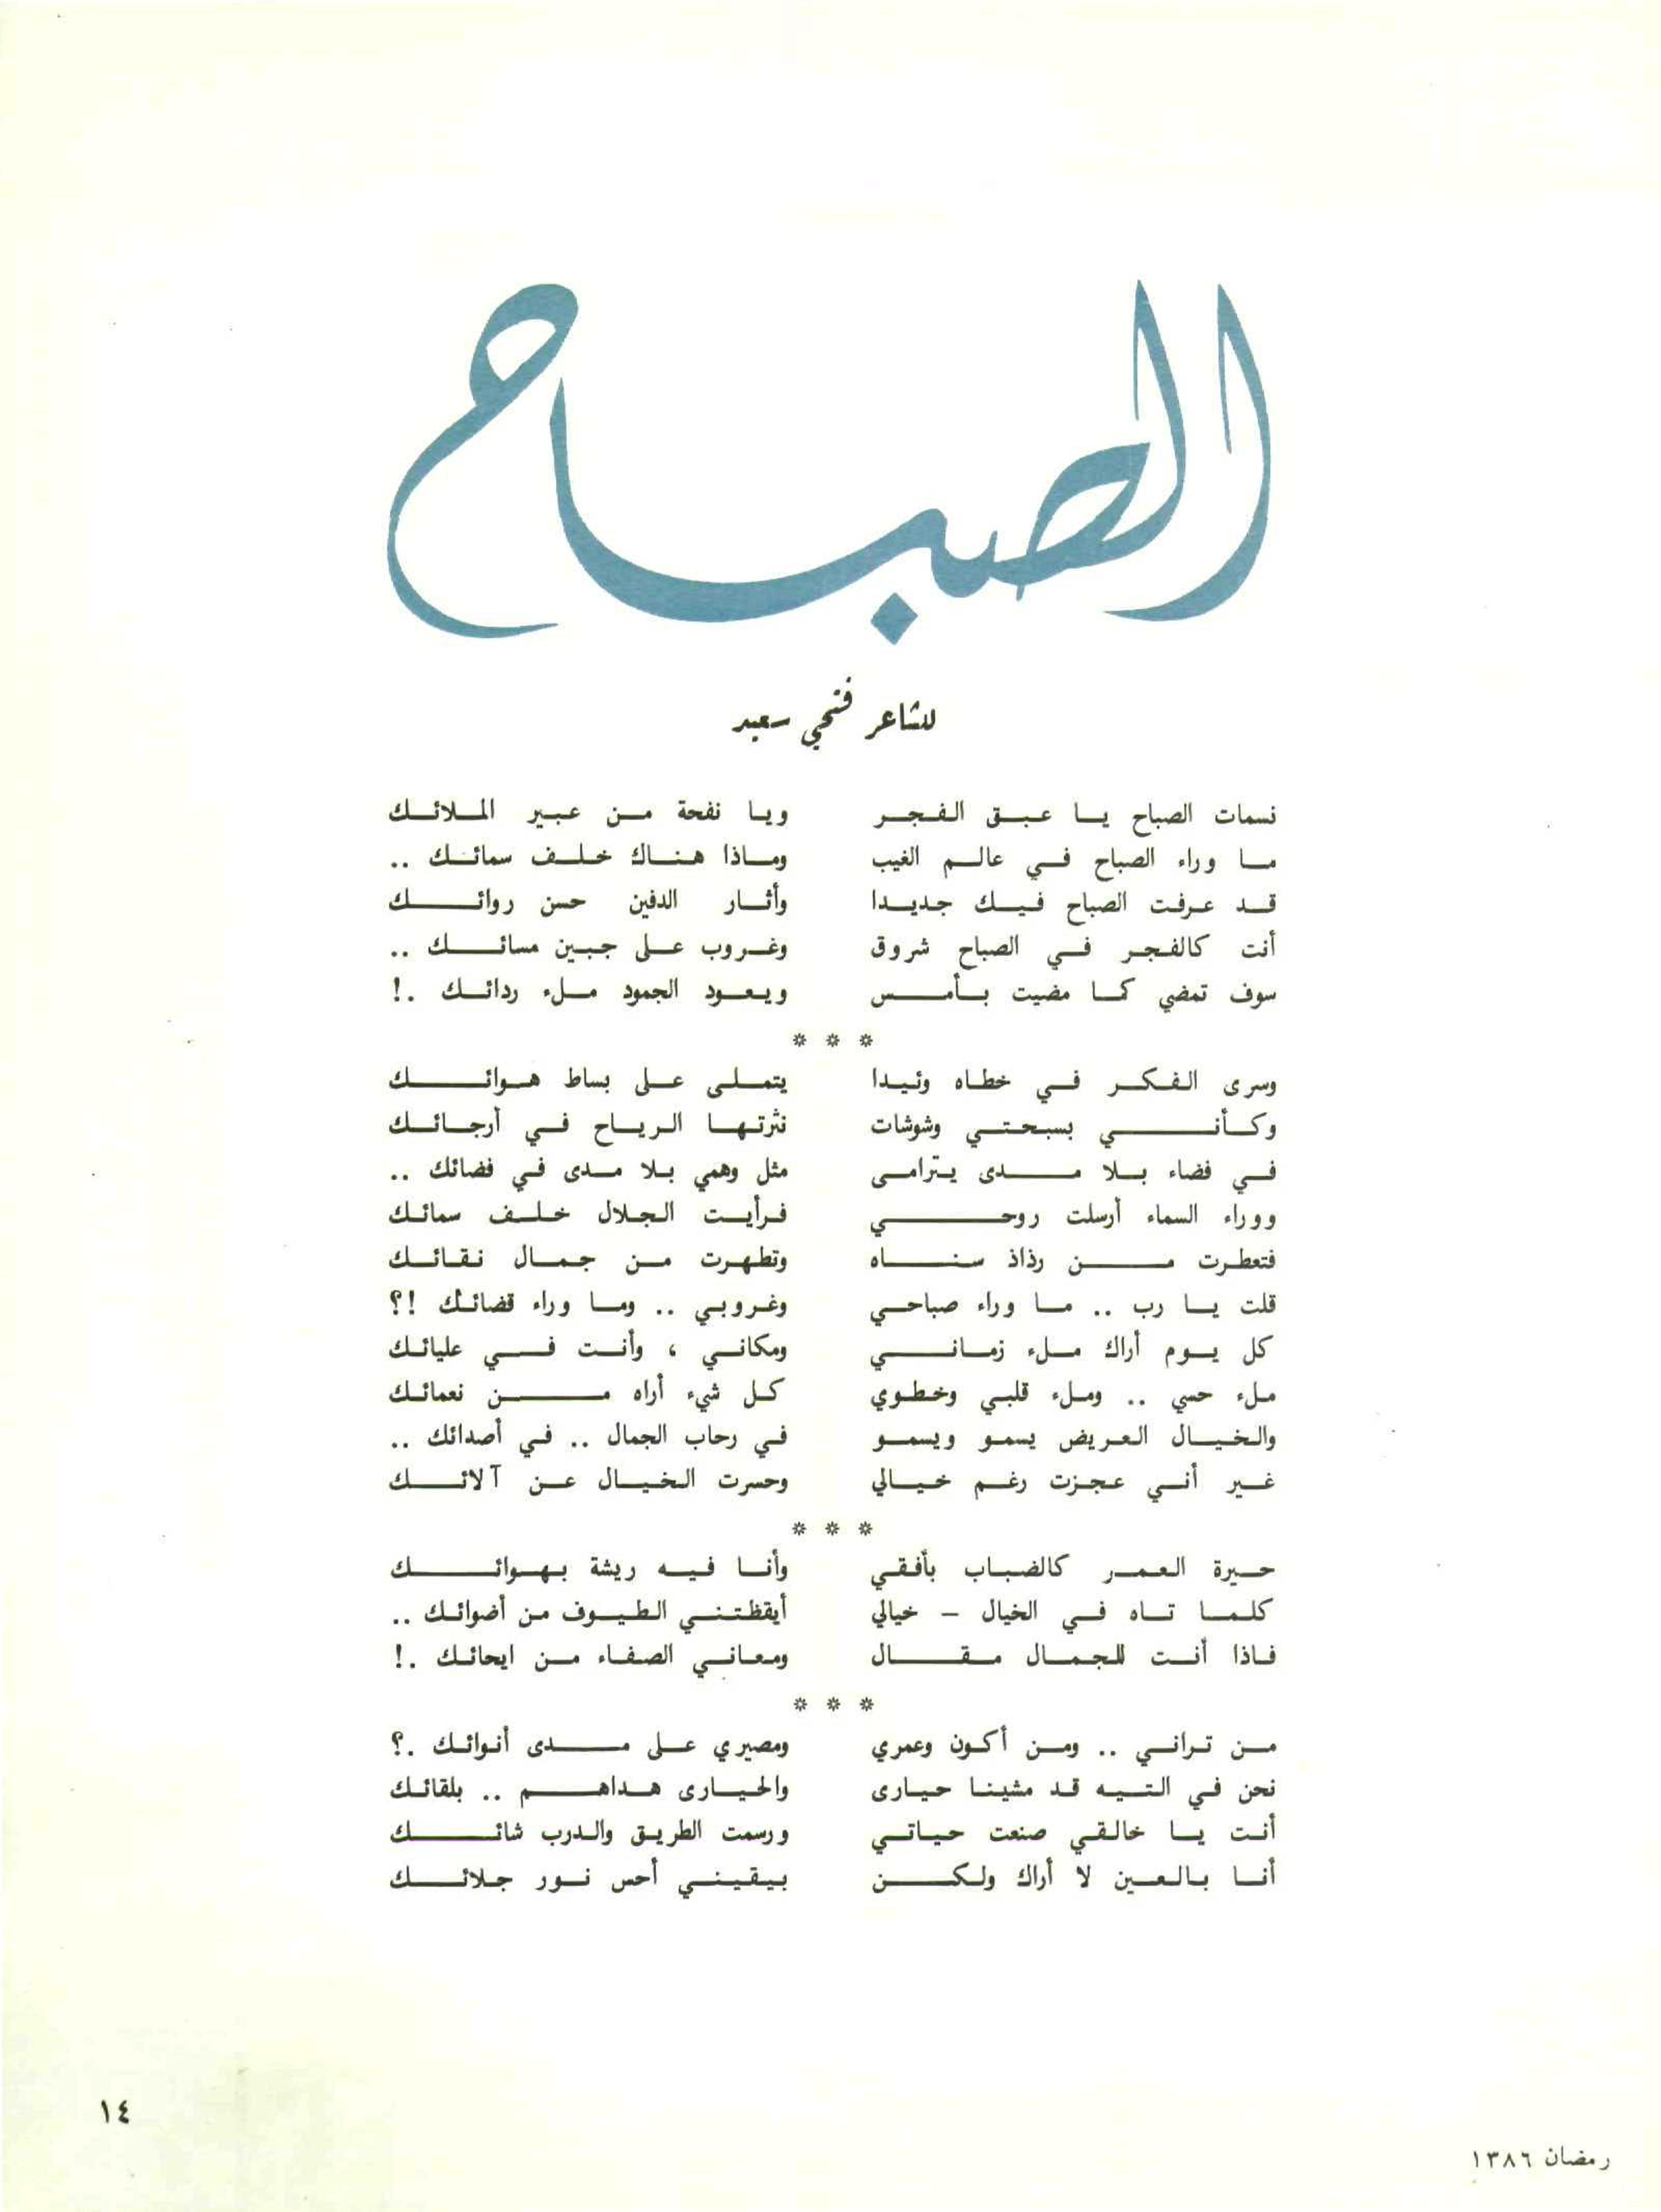 الصباح
للشاعر فتحي سعيد
نسمات الصباح يا عبق الفجر ويا نفحة من عبير الملائك
ما وراء الصباح في عالم الغيب وماذا هناك خلف سمائك ..
قد عرفت الصباح فيك جديدا وأثار الدفين حسن روائك
أنت كالفجر في الصباح شروق وغروب على جبين مسائك ..
سوف تمضي كما مضيت بأمس ويعود الجمود ملء ردائك .!
* * *
وسرى الفكر في خطاه وئيدا يتملى على بساط هوائك
وكأني بسبحتي وشوشات نثرتها الرياح في أرجائك
في فضاء بلا مدى يترامى مثل وهمي بلا مدى في فضائك ..
ووراء السماء أرسلت روحي فرأيت الجلال خلف سمائك
فتعطرت من رذاذ سناه وتطهرت من جمال نقائك
قلت يا رب .. ما وراء صباحي وغروبي .. وما وراء قضائك !؟
كل يوم أراك ملء زماني ومكاني ، وأنت في عليائك
ملء حسي .. وملء قلبي وخطوي كل شيء أراه من نعمائك
والخيال العريض يسمو ويسمو في رحاب الجمال .. في أصدائك ..
غير أني عجزت رغم خيالي وحسرت الخيال عن آلائك
* * *
حيرة العمر كالضباب بأفقي وأنا فيه ريشة بهوائك
كلما تاه في الخيال - خيالي أيقظتني الطيوف من أضوائك ..
فاذا أنت للجمال مقال ومعاني الصفاء من ايحائك .!
* * *
من تراني .. ومن أكون وعمري ومصيري على مدى أنوائك .؟
نحن في التيه قد مشينا حيارى والحيارى هداهم .. بلقائك
أنت يا خالقي صنعت حياتي ورسمت الطريق والدرب شائك
أنا بالعين لا أراك ولكن بيقيني أحس نور جلائك
١٤
رمضان ١٣٨٦